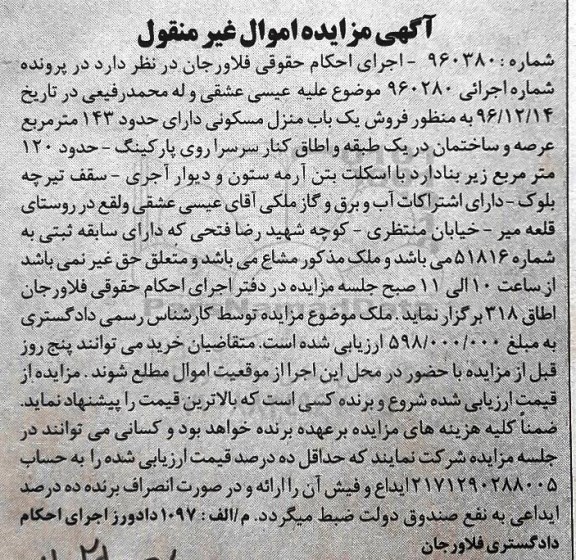 آگهی مزایده اموال غیر منقول
شماره : ۹۶۰۳۸۰ - اجرای احکام حقوقی فلاورجان در نظر دارد در پرونده
شماره اجرائی ۹۶۰۲۸۰ موضوع علیه عیسی عشقی و له محمدرفیعی در تاریخ
۹۶/۱۲/۱۴ به منظور فروش یک باب منزل مسکونی دارای حدود ۱۴۳ مترمربع
عرصه و ساختمان در یک طبقه و اطاق کنار سرسرا روی پارکینگ - حدود ۱۲۰
متر مربع زیر بنادارد با اسکلت بتن آرمه ستون و دیوار آجری - سقف تیرچه
بلوک - دارای اشتراکات آب و برق و گاز ملکی آقای عیسی عشقی ولقع در روستای
قلعه میر - خیابان منتظری - کوچه شهید رضا فتحی که دارای سابقه ثبتی به
شماره ۵۱۸۱۶ می باشد و ملک مذکور مشاع می باشد و متعلق حق غیر نمی باشد
از ساعت ۱۰ الی ۱۱ صبح جلسه مزایده در دفتر اجرای احکام حقوقی فلاورجان
اطاق ۳۱۸ برگزار نماید. ملک موضوع مزایده توسط کارشناس رسمی دادگستری
به مبلغ ۵۹۸/۰۰۰/۰۰۰ ارزیابی شده است. متقاضیان خرید می توانند پنج روز
قبل از مزایده با حضور در محل این اجرا از موقعیت اموال مطلع شوند . مزایده از
قیمت ارزیابی شده شروع و برنده کسی است که بالاترین قیمت را پیشنهاد نماید.
ضمناً کلیه هزینه های مزایده بر عهده برنده خواهد بود و کسانی می توانند در
جلسه مزایده شرکت نمایند که حداقل ده درصد قیمت ارزیابی شده را به حساب
۲۱۷۱۲۹۰۲۸۸۰۰۵ ایداع و فیش آن را ارائه و در صورت انصراف برنده ده درصد
ایداعی به نفع صندوق دولت ضبط میگردد. م/الف : ۱۰۹۷ دادورز اجرای احکام
دادگستری فلاورجان